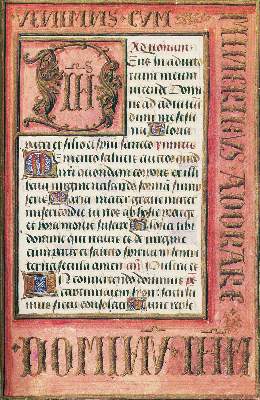 VENIMUS · CUM
MUNERIBUS ADORARE
DOMINU · IHM
Ad nonam.
Eus in adiuto
rium meum
intende Domi
ne ad adiuua
dum me festi
na Gloria
patri et filio et spiritui sancto
Memento salutis auctor quod
nostri quondam corporis ex illi
bata virgine nascendo formam sum
pseris Maria mater gratie mater
misericordie tu nos ab hoste protege
et hora mortis suscipe Gloria tibi
domine qui natus es de virgine
cum patre et sancto spiritu in sempi
terna secula amen Pulcra es
In conuertendo dominus
captiuitatem syon facti su
mus sicut consolati Tunc reple